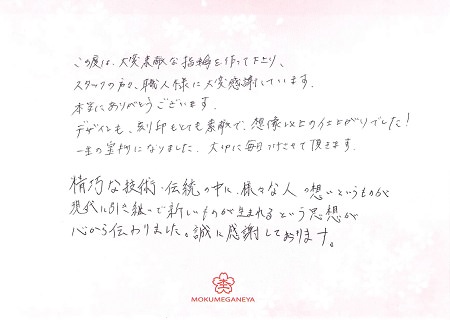 この度は、大変素敵な指輪を作って下さり、
スタッフの方々、職人様に大変感謝しています。
本当にありがとうございます。
デザインも、刻印もとても素敵で、想像以上の仕上がりでした！
一生の宝物になりました。大切に毎日つけさせて頂きます。
精巧な技術・伝統の中に、様々な人の想いというものが
現代に引き継いで新しいものが生まれるという思想が
心から伝わりました。誠に感謝しております。
MOKUMEGANEYA